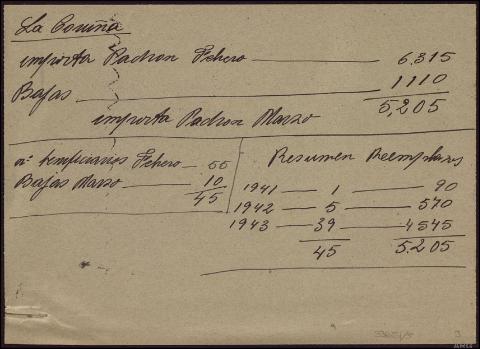 La Coruña
importa Padron Febero 6.315
Bajas 1110
5,205
importa Padron Marzo
nº beneficiarios Febero 55
Bajas Marzo 10
45
Resumen Reemplazos
1941 1 90
1942 5 570
1943 39 4545
45 5.205